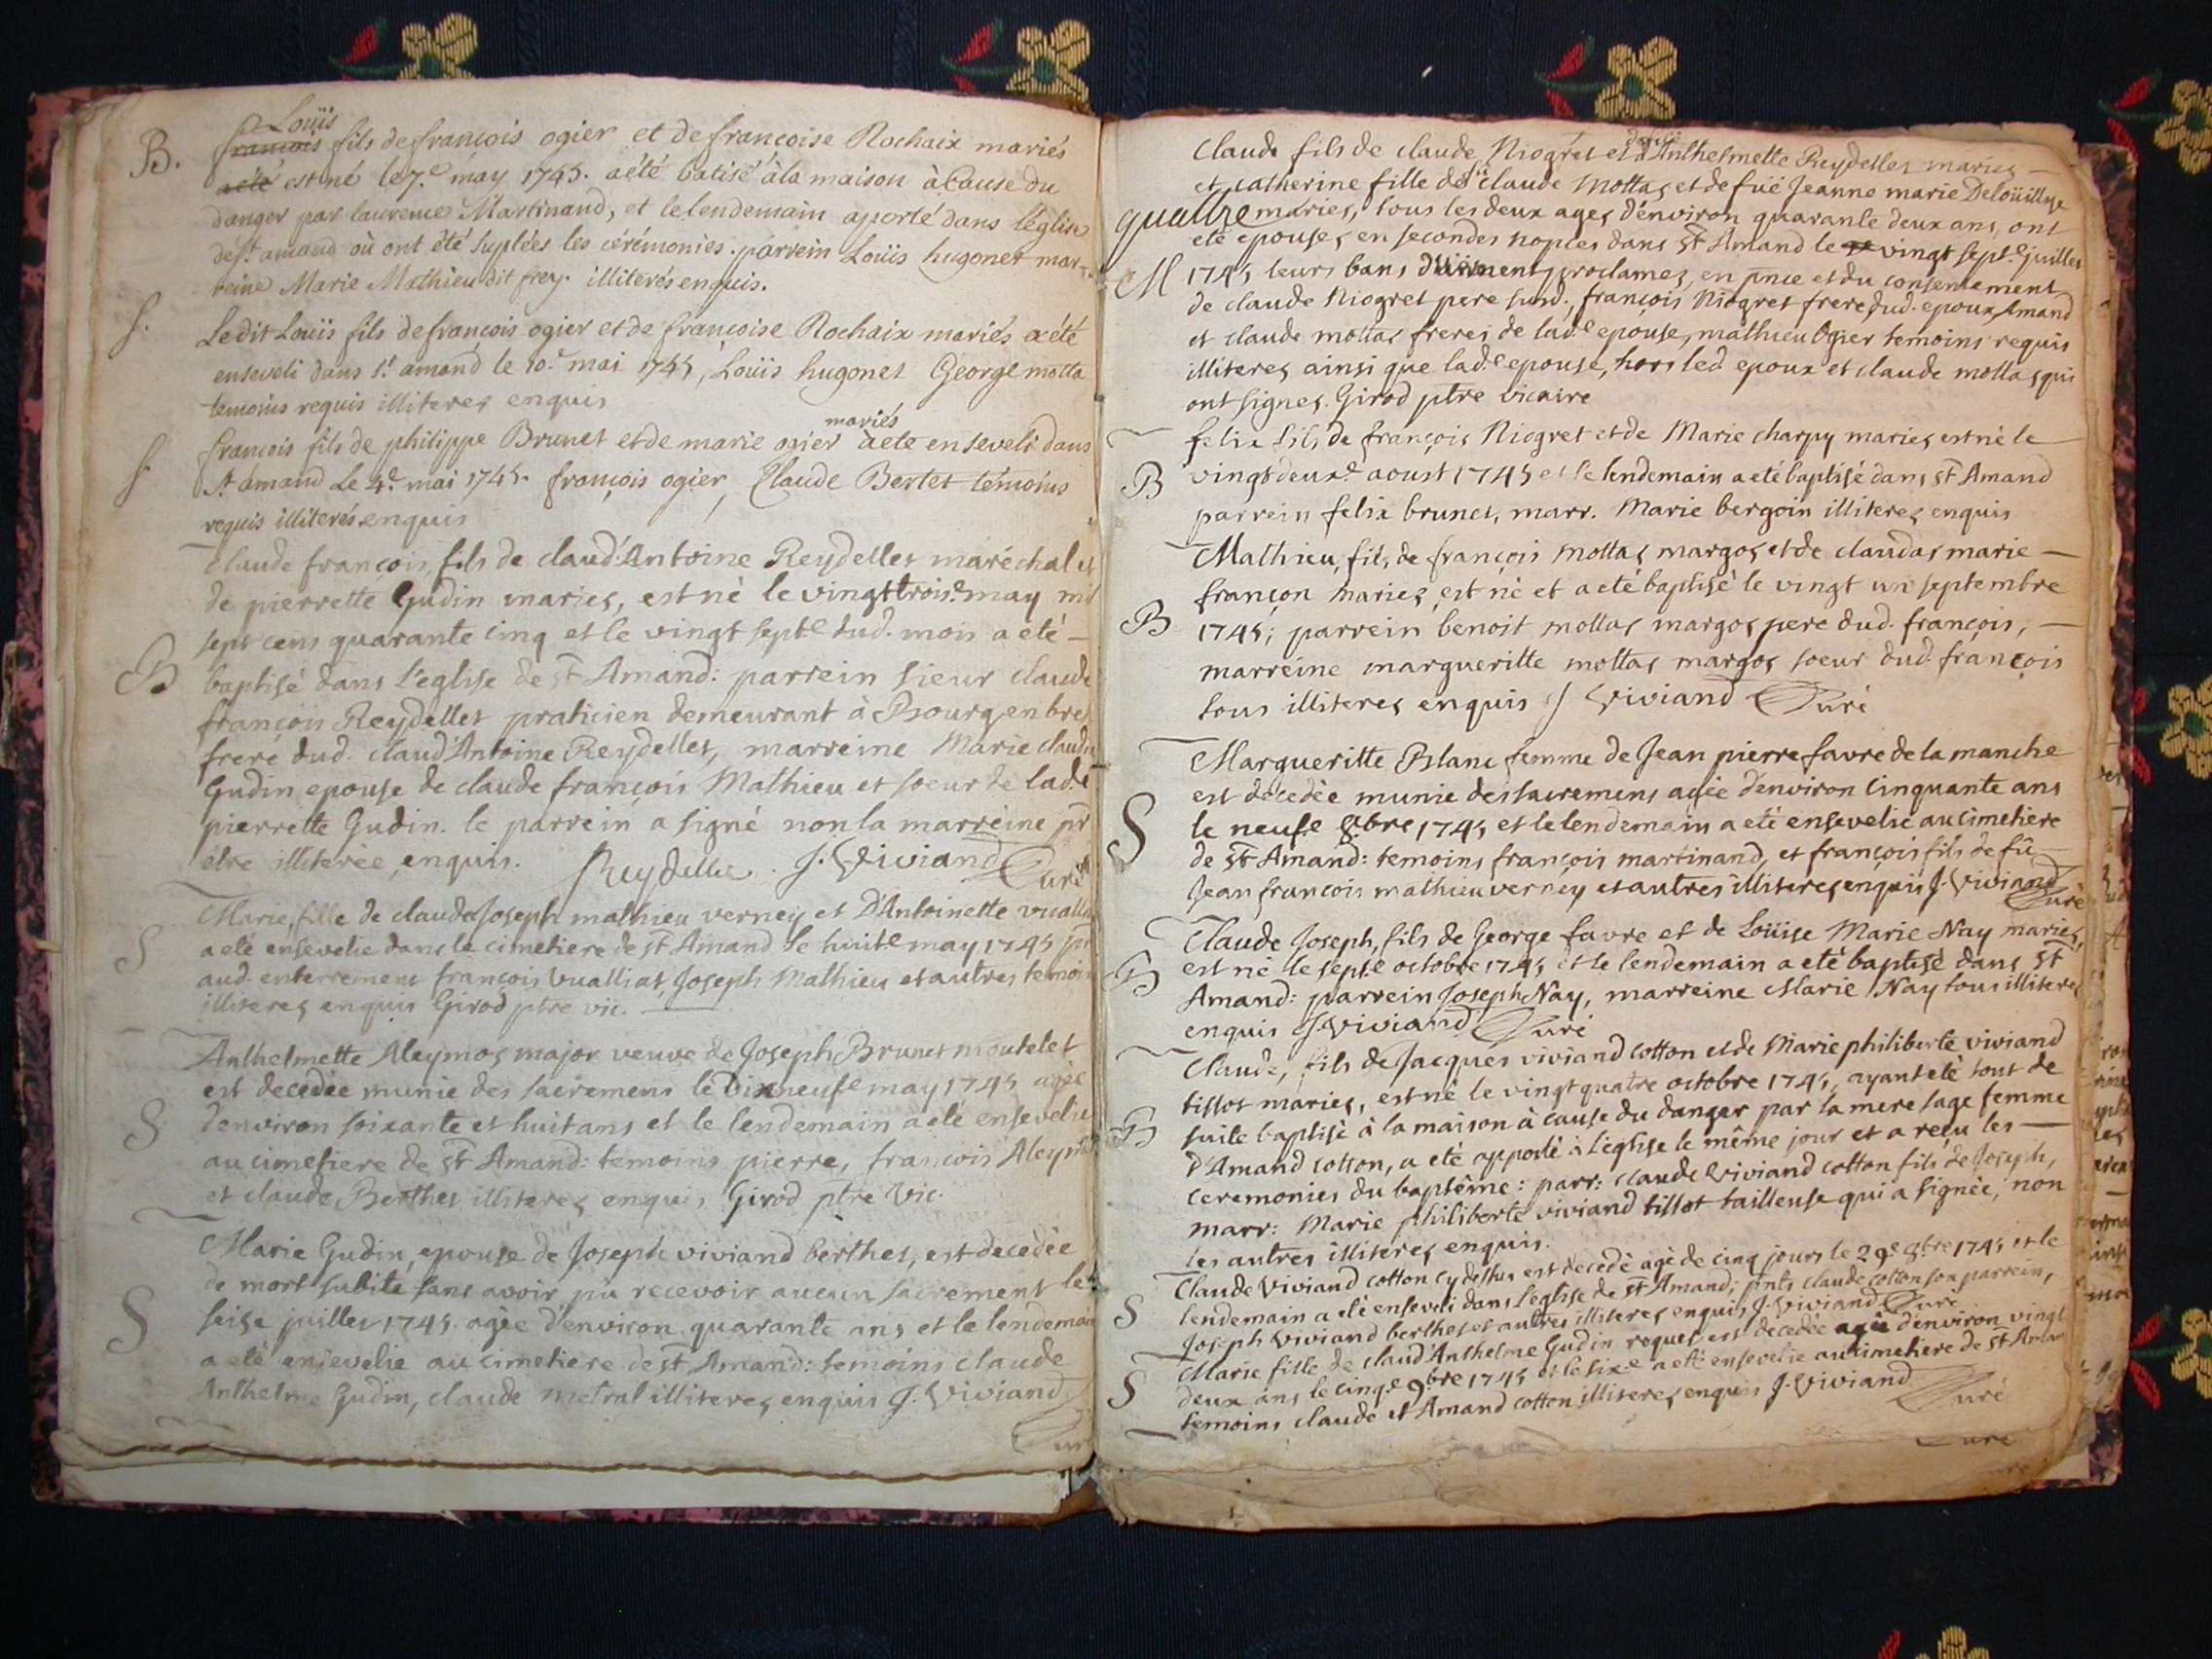 Louïs
B. françois fils de françois ogier et de françoise Rochaix mariés
a eté est né le 7.e may 1745. a été batisé à la maison à Cause du
danger par laurence Martinand, et le lendemain aporté dans l'église
de st. amand où ont été suplées les cérémonies. parrein Louïs hugonet mar-
reine Marie Mathieu dit frey. illiterés enquis.
S. Le dit Louïs fils de françois ogier et de françoise Rochaix mariés a été
enseveli dans st. amand le 10.e mai 1745, Louïs hugonet George motta
temoins requis illiteres enquis
mariés
S. françois fils de philippe Brunet et de marie ogier a ete enseveli dans
st. amand Le 4.e mai 1745. françois ogier, Claude Bertet témoins
requis illiterés enquis
Claude françois, fils de claud'Antoine Reydellet maréchal et
de pierrette Gudin mariés, est né le vingt trois.e may mil
sept cens quarante cinq et le vingt sept.e dud. mois a eté
B baptisé dans l'eglise de st Amand: parrein sieur claude
françois Reydellet praticien demeurant à Bourg en bres
frere dud. claud'Antoine Reydellet, marreine Marie claudi
Gudin epouse de claude françois Mathieu et soeur de lad.e
pierrette Gudin. le parrein a signé non la marreine pr
etre illiterée enquis. Reydellet. J. Viviand Curé
Marie, fille de claude Joseph mathieu verney et D'Antoinette vualli
S a eté ensevelie dans le cimetiere de st Amand le huit.e may 1745
aud. enterrement françois Vualliat, Joseph Mathieu et autres temoi
illiteres enquis Girod ptre vic.
Anthelmette Aleymos major veuve de Joseph Brunet moutelet
est decedée munie des sacremens le dix neuf.e may 1745 agée
S d'environ soixante et huit ans et le lendemain a eté ensevelie
au cimetiere de st Amand: temoins pierre, françois Aleym
et claude Berthet illiteres enquis Girod ptre Vic.
Marie Gudin, epouse de Joseph viviand berthet, est decedée
de mort subite sans avoir pu recevoir aucun sacrement le
S seise juillet 1745. agée d'environ quarante ans et le lendemain
a eté ensevelie au cimetiere de st Amand: temoins claude
Anthelme Gudin, claude metral illiteres enquis J. Viviand
Curé
Claude fils de claude Niogret et d'Anthelmette Reydellet mariés
et catherine fille de claude mottas et de füe Jeanne marie Deloüillye
quattre mariés, tous les deux agés d'environ quarante deux ans, ont
eté epousés en secondes nopces dans st Amand le vingt sept.e juillet
M 1745 leurs bans düement proclamez, en pnce et du consentement
de claude Niogret pere susd., françois Niogret frere dud. epoux, Amand
et claude mottas freres de lad.e epouse, mathieu Ogier temoins requis
illiteres ainsi que lad.e epouse, hors led epoux et claude mottas qui
ont signés. Girod ptre vicaire
felix fils de françois Niogret et de Marie charpy mariés est né le
B vingt deux.e aoust 1745 et le lendemain a eté baptisé dans st Amand
parrein felix brunet, marr. Marie bergoin illiteres enquis
Mathieu, fils de françois mottas margos et de claudas marie
françon mariés, est né et a eté baptisé le vingt un septembre
B 1745; parrein benoit mottas margos pere dud. françois,
marreine margueritte mottas margos soeur dud. françois
tous illiteres enquis J Viviand Curé
Margueritte Blanc femme de Jean pierre favre de la manche
est decedée munie des sacremens agée d'environ cinquante ans
S le neuf.e 8.bre 1745 et le lendemain a eté ensevelie au cimetiere
de st Amand: temoins françois martinand, et françois fils de fû
Jean françois mathieu verney et autres illiteres enquis J. Viviand
Curé
Claude Joseph, fils de George favre et de Loüise Marie Nay mariés,
B est né le sept.e octobre 1745 et le lendemain a eté baptisé dans st
Amand: parrein Joseph Nay, marreine Marie Nay tous illiteres
enquis J. Viviand Curé
Claude, fils de Jacques viviand cotton et de Marie philiberte viviand
tissot mariés, est né le vingt quatre octobre 1745, ayant eté tout de
B suite baptisé à la maison à cause du danger par la mere sage femme
d'Amand cotton, a eté apporté à l'église le même jour et a reçu les
ceremonies du baptême: parr: claude Viviand cotton fils de Joseph,
marr: Marie philiberte viviand tissot tailleuse qui a signée, non
les autres illiteres enquis.
Claude Viviand cotton cy dessus est décedé agé de cinq jours le 29.e 8.bre 1745 et le
S lendemain a eté enseveli dans l'église de st Amand; pnts claude cotton son parrein,
Joseph Viviand berthet et autres illiteres enquis J. Viviand Curé
Marie fille de claud'Anthelme Gudin roquet est decedée agée d'environ vingt
S deux ans le cinq.e 9.bre 1745 et le six.e a eté ensevelie au cimetiere de st Aman
temoins claude et Amand cotton illiteres enquis J. Viviand
Curé